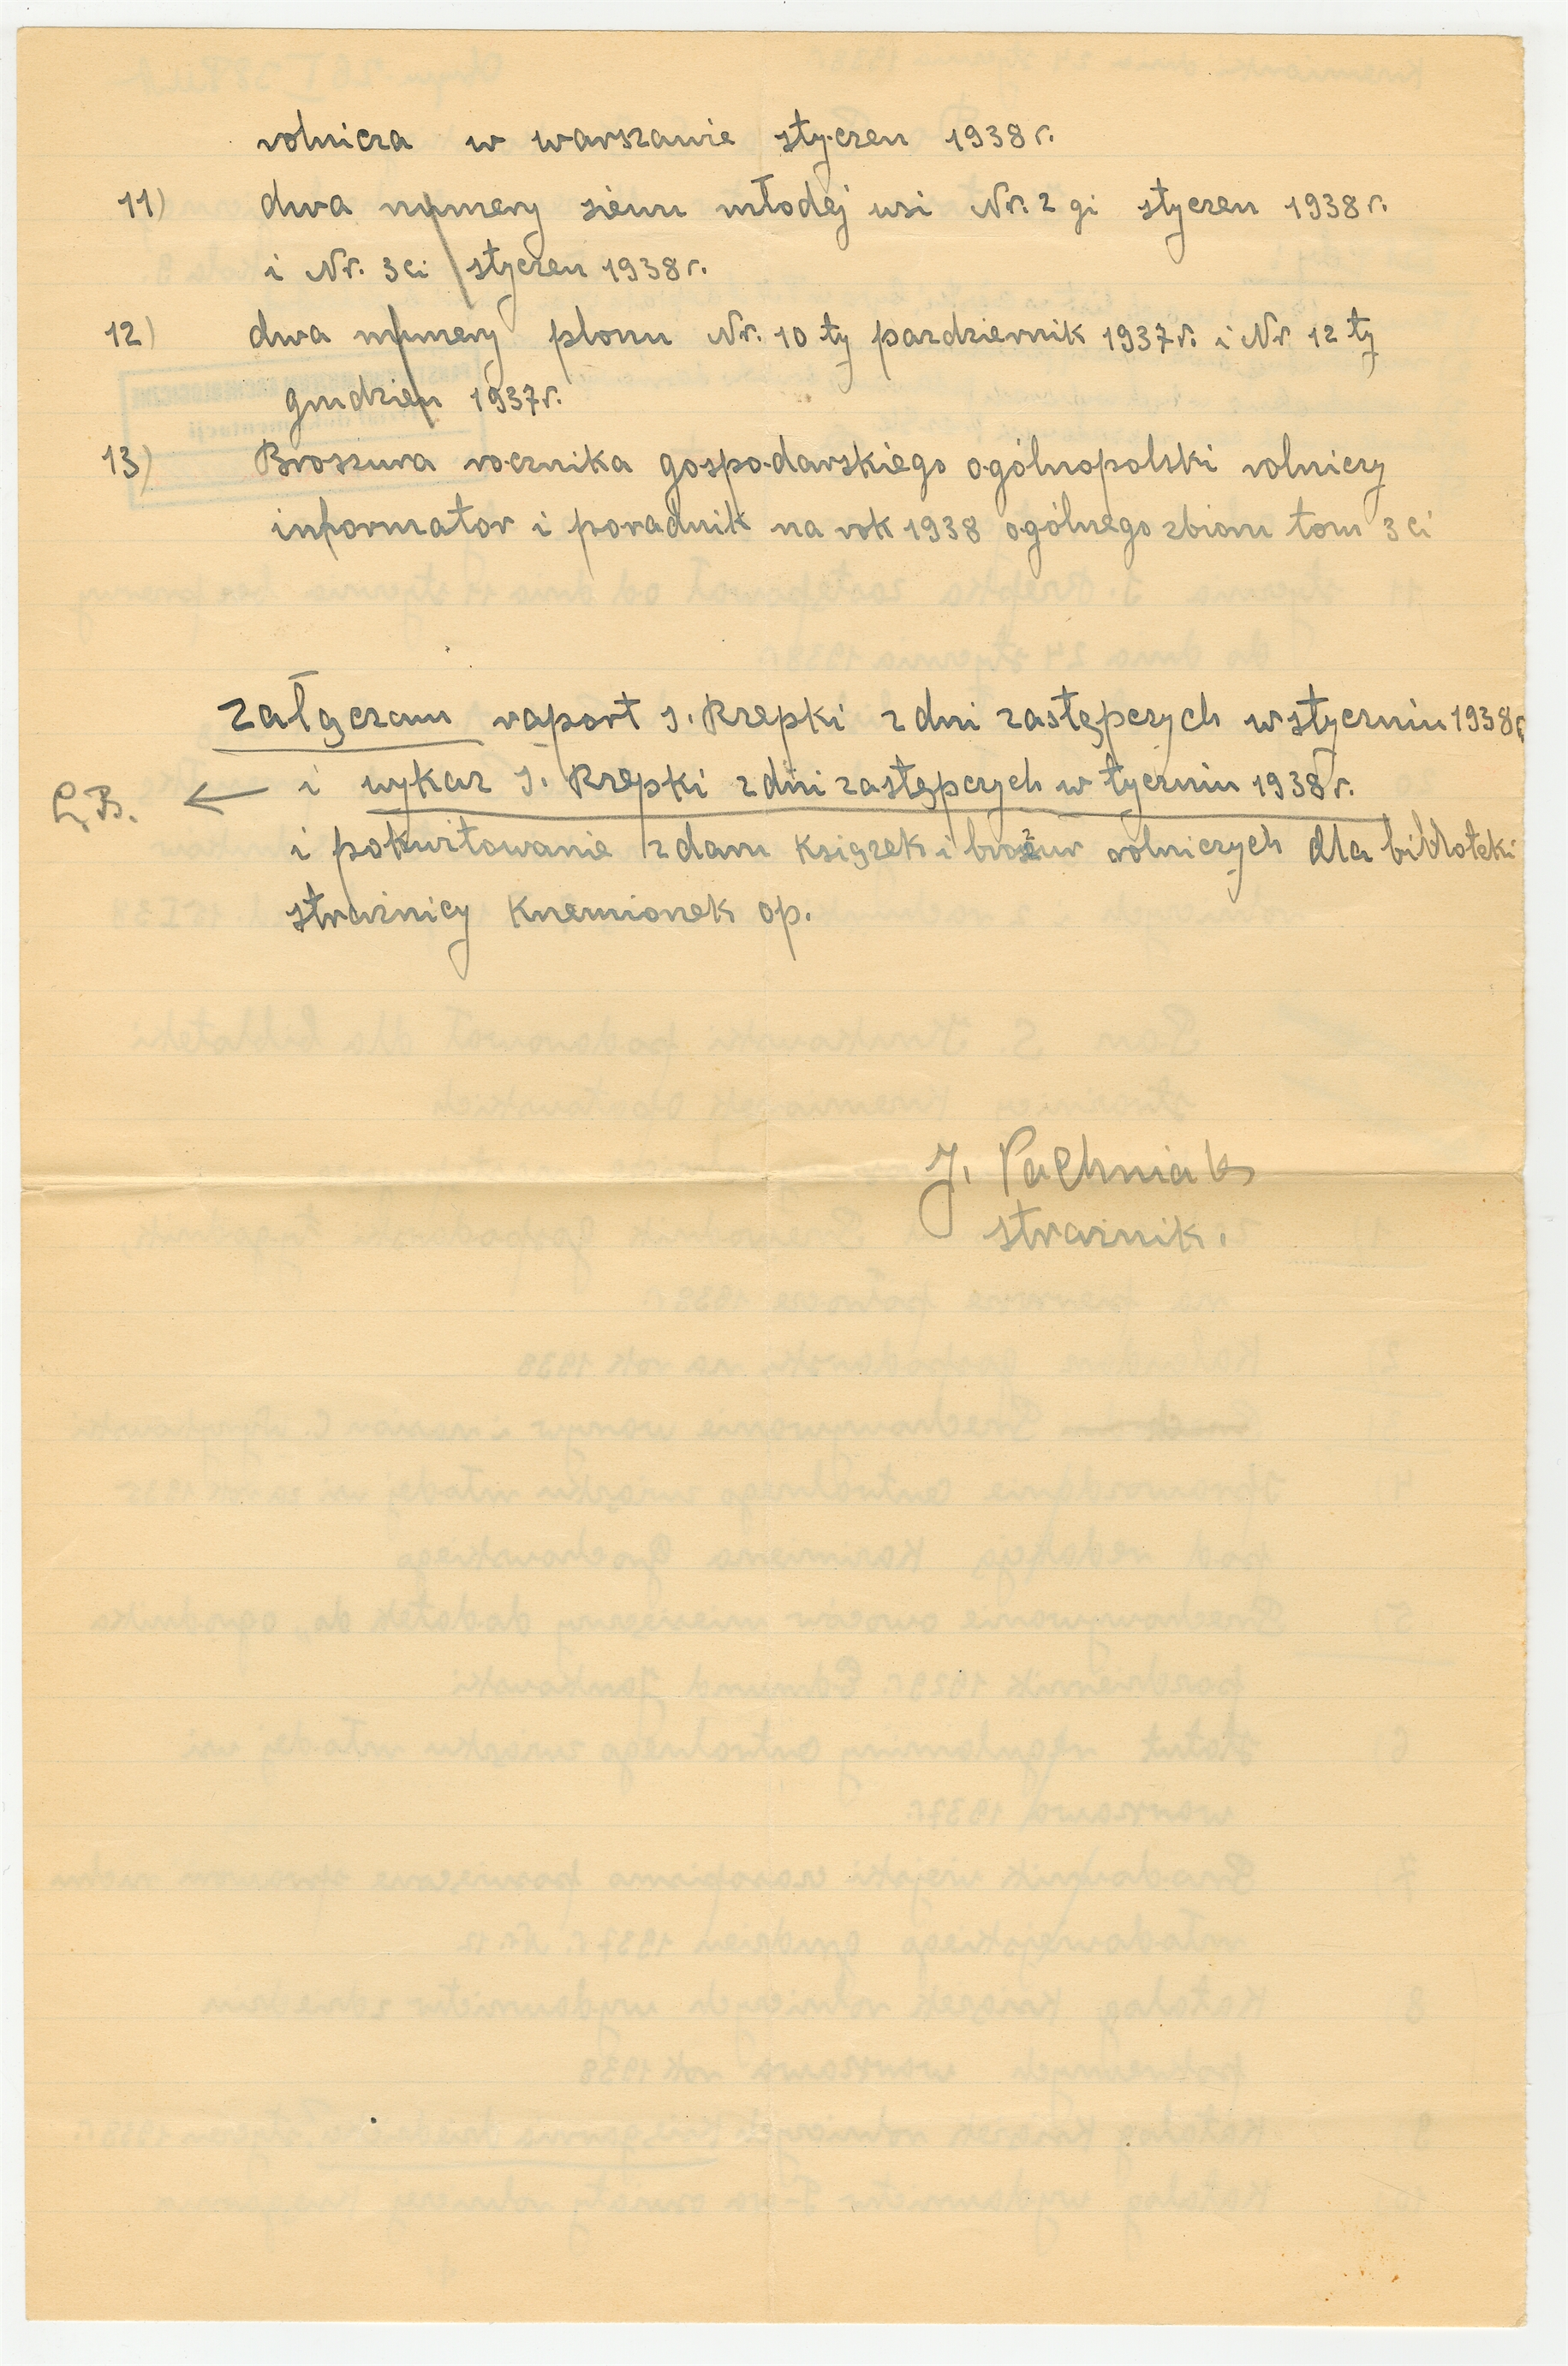 rolnicza w warszawie styczen 1938 r.
11) dwa numery siewu młodej wsi Nr. 2 gi styczen 1938 r.
i Nr. 3 ci styczen 1938 r.
12) dwa numery plonu Nr. 10 ty pazdziernik 1937 r. i Nr 12 ty
grudzien 1937 r.
13) Broszura rocznika gospodarskiego ogólnopolski rolniczy
informator i poradnik na rok 1938 ogólnego zbioru tom 3 ci
załączam raport J. Rzepki z dni zastępczych w styczniu 1938 r
i wykaz J. Rzepki z dni zastępczych w tyczniu 1938 r.
L.B. ←
i pokwitowanie z daru książek i broszur rolniczych dla bibloteki
straznicy Krzemionek op.
J. Pachniak
straznik.